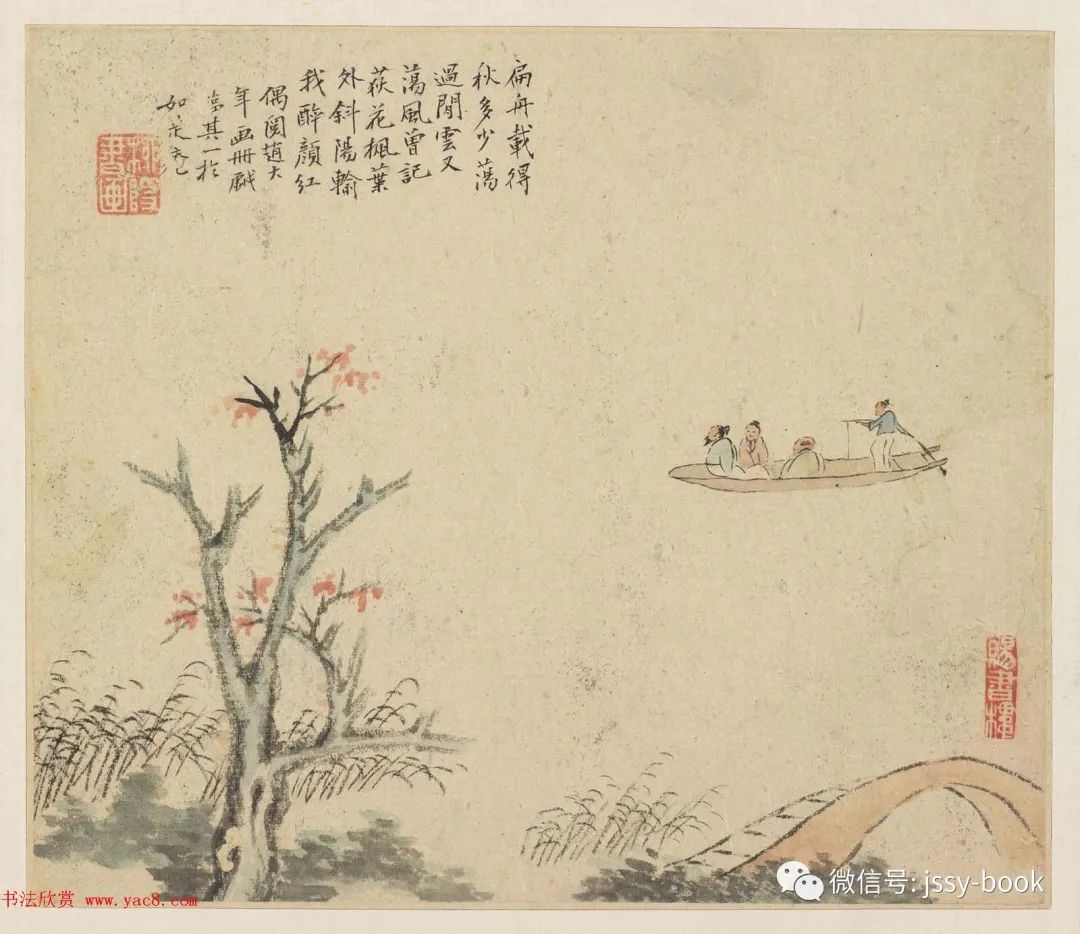 扁舟載得
秋多少蕩
過閒雲又
蕩風曾記
荻花楓葉
外斜陽輸
我醉顏紅
偶閱趙大
年畫冊戲
其一於
如是
賜書樓
书法欣赏 www.yac8.com
微信号: jssy-book